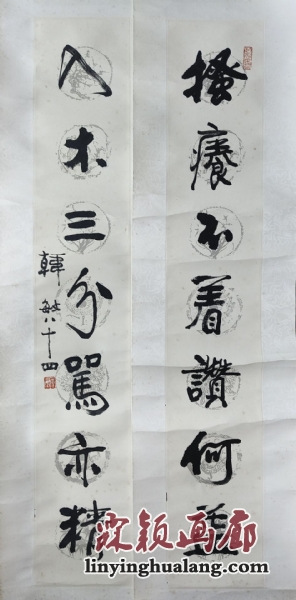 搔癢不着讚何益
入木三分罵亦精
韓敏八十四
霖颖画廊
linyinghualang.com